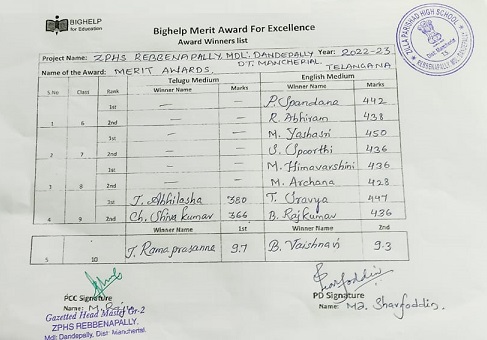 BIGHELP
for Education
Bighelp Merit Award For Excellence
Award Winners list
Project Name: ZPHS REBBENAPALLY. MDL: DANDEPALLY Year: 2022-23
DT. MANCHERIAL. TELANGANA
Name of the Award: MERIT AWARDS.
Telugu Medium English Medium
S No Class Rank Winner Name Marks Winner Name Marks
1st — — P. Spandana 442
1 6 2nd — — R. Abhiram 438
1st — — M. Yashasri 450
2 7 2nd — — S. Spoorthi 436
— — M. Himavarshini 436
3 8 2nd — — M. Archana 428
1st J. Abhilasha 380 T. Sravya 447
4 9 2nd Ch. Shiva kumar 366 B. Rajkumar 436
Winner Name 1st Winner Name 2nd
5 10 J. Rama prasanna 9.7 B. Vaishnavi 9.3
PCC Signature
Name: M. Raju
Gazetted Head Master Gr-2
ZPHS REBBENAPALLY.
Mdl: Dandepally, Dist: Mancherial.
PD Signature
Name: Md. Sharfoddin.
ZILLA PARISHAD HIGH SCHOOL